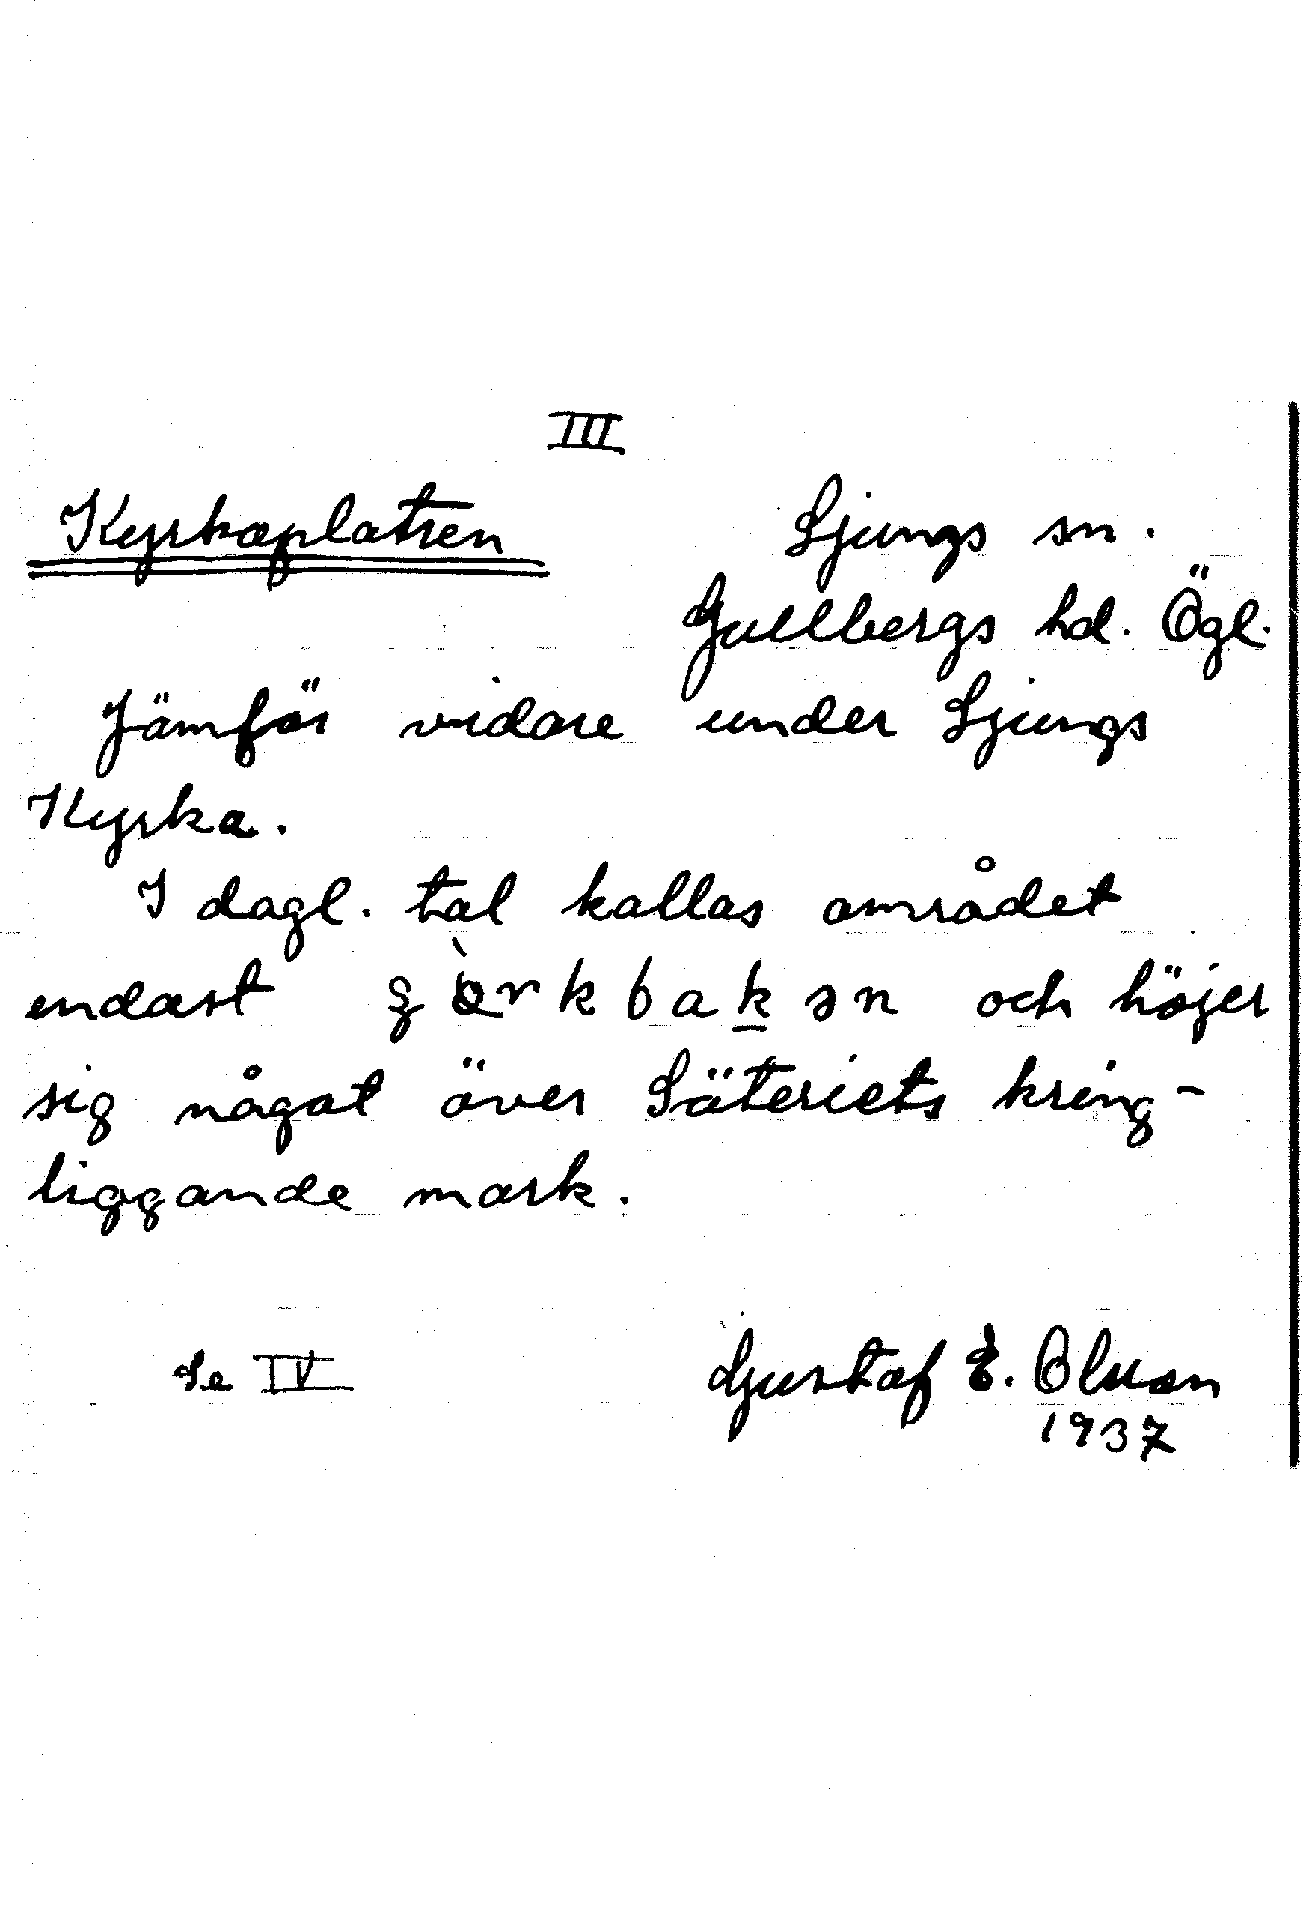 III
Kyrkoplatsen Ljungs sn.
Gullbergs hd. Ögl.
Jämför vidare under Ljungs
Kyrka.
I dagl. tal kallas området
endast och höjer
sig något över Säteriets kring-
liggande mark.
Se IV Gustaf E. Olsson
1937